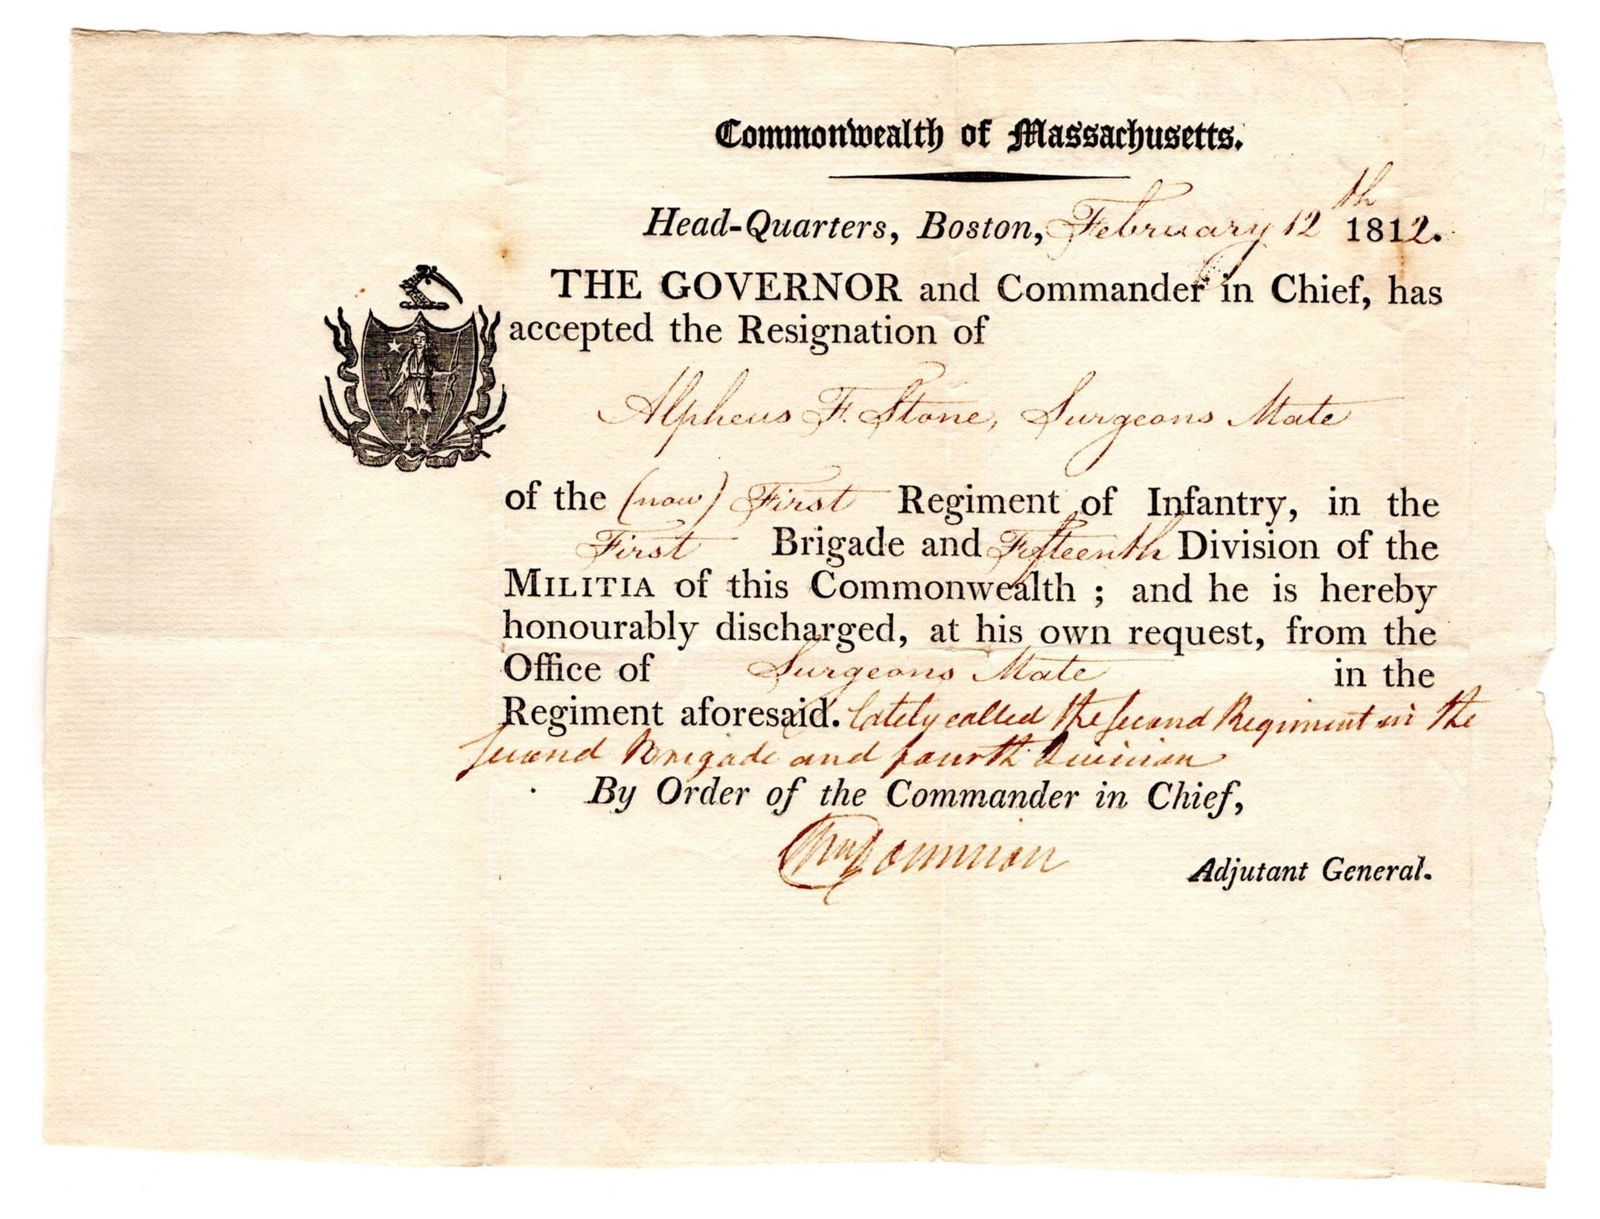 Commonwealth of Massachusetts.
Head-Quarters, Boston, February 12th 1812.
THE GOVERNOR and Commander in Chief, has
accepted the Resignation of
Alpheus F. Stone, Surgeons Mate
of the (now) First Regiment of Infantry, in the
First Brigade and Fifteenth Division of the
MILITIA of this Commonwealth ; and he is hereby
honourably discharged, at his own request, from the
Office of Surgeons Mate in the
Regiment aforesaid. lately called the second Regiment in the
second Brigade and fourth Division
By Order of the Commander in Chief,
Wm Donnison
Adjutant General.